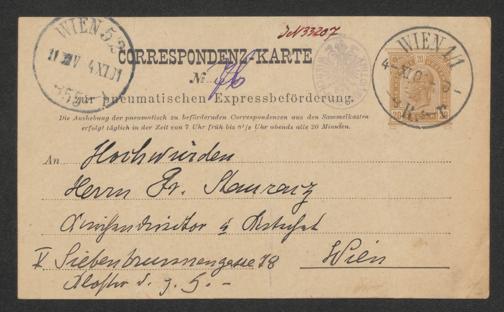 IN 33207
WIEN 1/1
WIEN 5/2
4 XI 01
CORRESPONDENZ-KARTE
No. 46
zur pneumatischen Expressbeförderung.
Die Aushebung der pneumatisch zu befördernden Correspondenzen aus den Sammelkasten
erfolgt täglich in der Zeit von 7 Uhr früh bis 9½ Uhr abends alle 20 Minuten.
An Hochwürden
Herrn
Kirchendirektor &
V Siebenbrunnengasse 78 Wien
Kloster d.